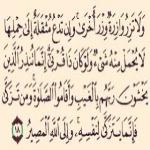 وَلَا تَزِرُ وَازِرَةٌ وِزْرَ أُخْرَىٰ ۚ وَإِن تَدْعُ مُثْقَلَةٌ إِلَىٰ حِمْلِهَا
لَا يُحْمَلْ مِنْهُ شَيْءٌ وَلَوْ كَانَ ذَا قُرْبَىٰ ۗ إِنَّمَا تُنذِرُ الَّذِينَ
يَخْشَوْنَ رَبَّهُم بِالْغَيْبِ وَأَقَامُوا الصَّلَوٰةَ ۚ وَمَن تَزَكَّىٰ
فَإِنَّمَا يَتَزَكَّىٰ لِنَفْسِهِ ۚ وَإِلَى اللَّهِ الْمَصِيرُ ١٨